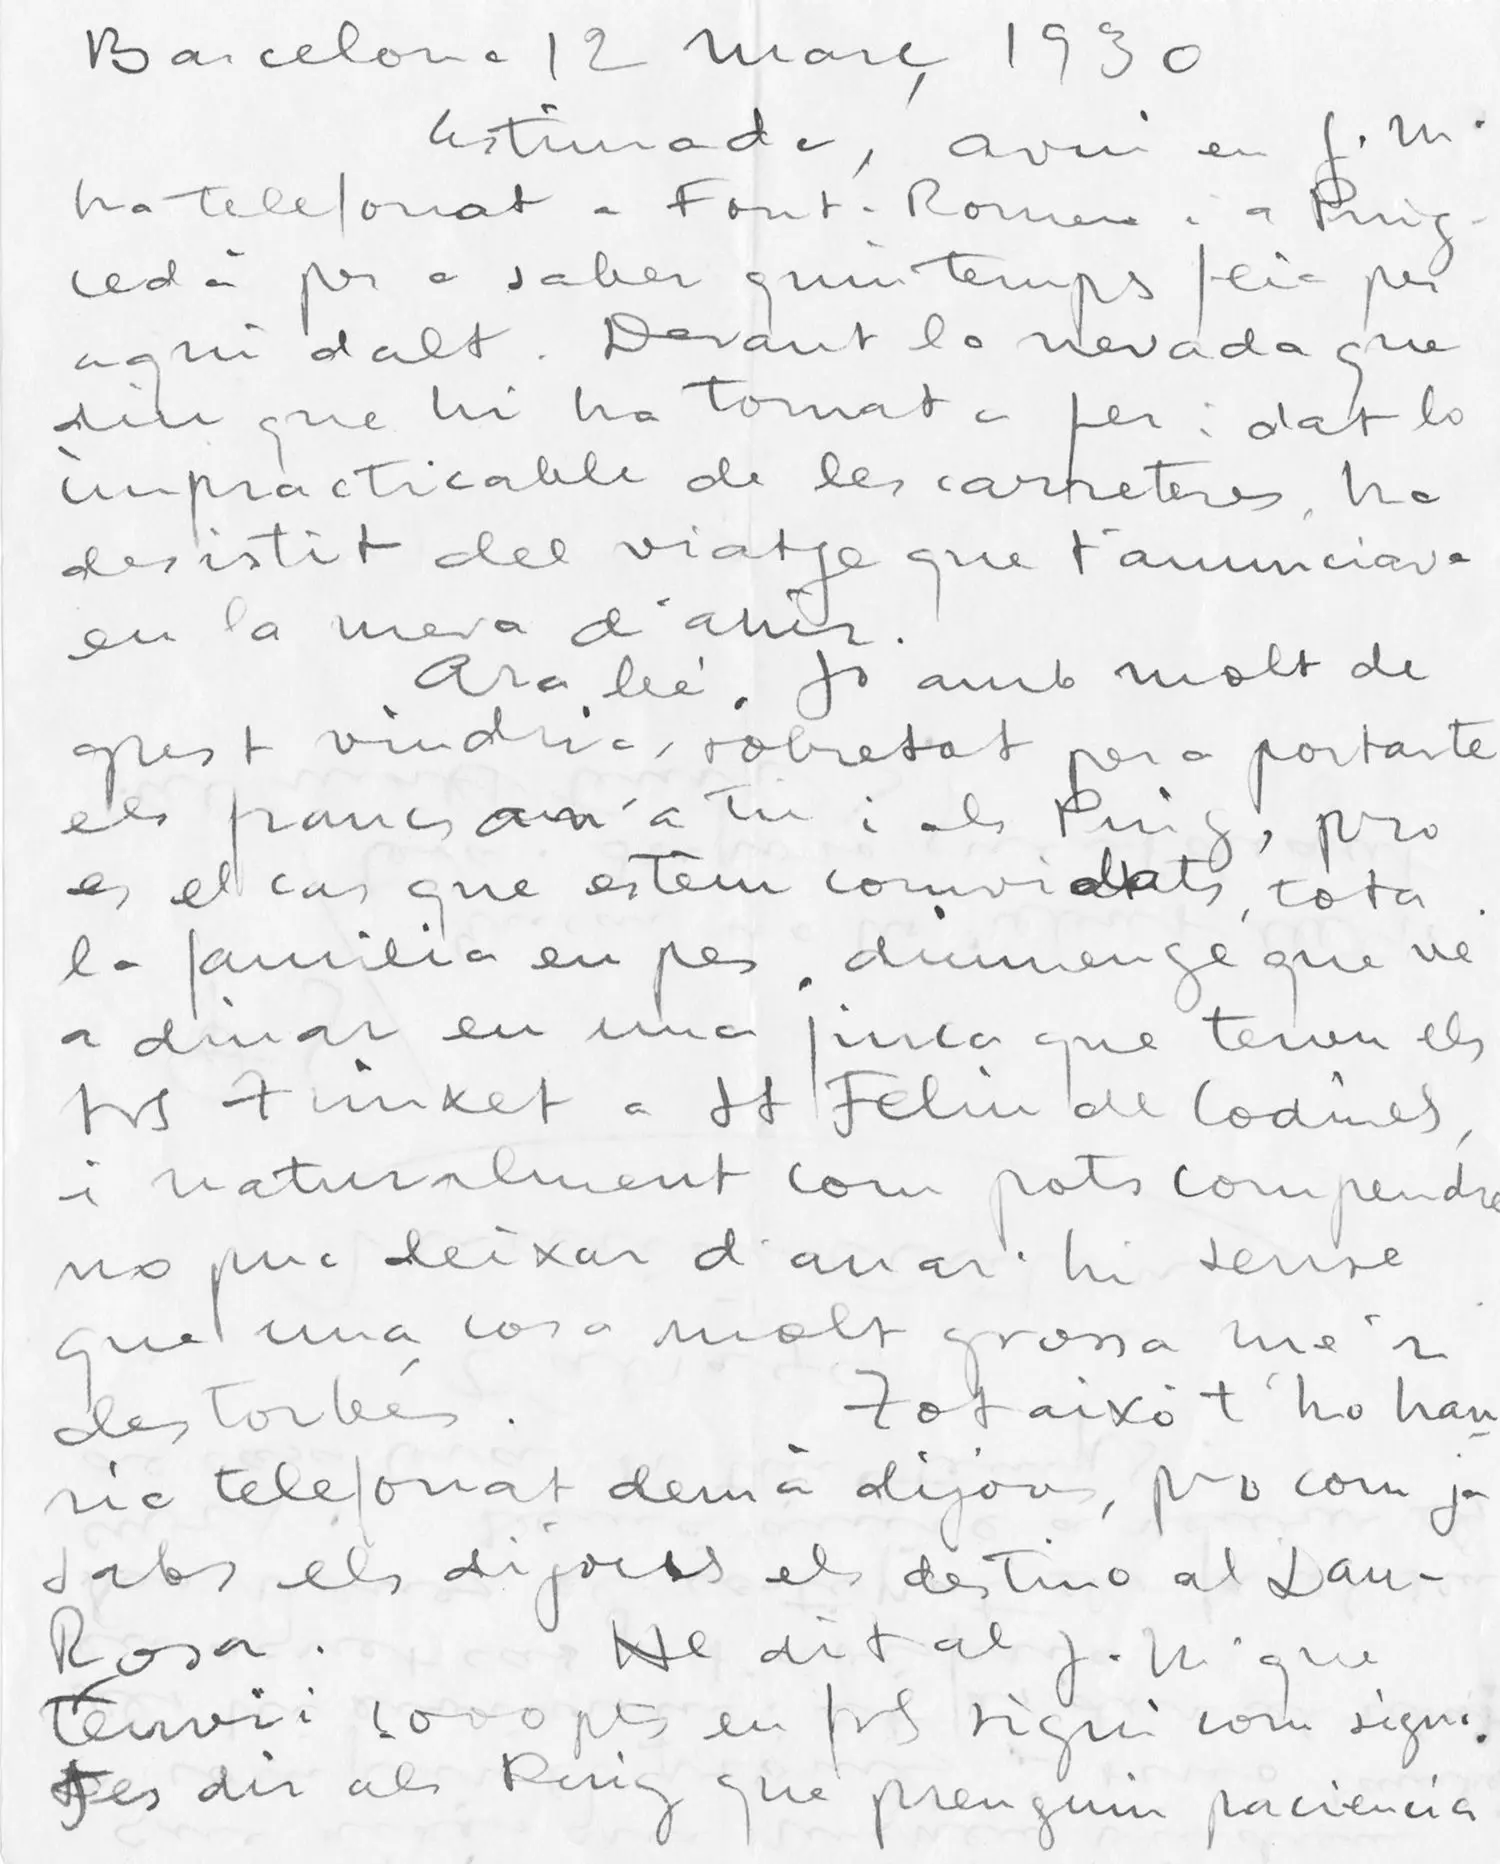 Barcelona 12 març 1930
Estimada, avui en J. M.
ha telefonat a Font-Romeu i a Puig-
cedà per a saber quin temps feia per
aquí dalt. Devant la nevada que
diu que hi ha tornat a fer i dat lo
impracticable de les carreteres, ha
desistit del viatje que t'anunciava
en la meva d'ahir.
Ara bé. Jo amb molt de
gust vindria, sobretot per a portarte
els francs an'a tu i als Puig, pro
es el cas que estem convidats, tota
la familia en pes, diumenge que ve
a dinar en una finca que tenen els
srs a St Feliu de Codines,
i naturalment com pots compendre
no puc deixar d'anar-hi sense
que una cosa molt grossa me'n
destorbés. Tot això t'ho hau-
ria telefonat demà dijous, pro com ja
sabs els dijous els destino al Lau-
Rosa. He dit al J. M. que
t'envii 1000 pts en frs sigui com sigui.
Fes dir als Puig que prenguin paciencia